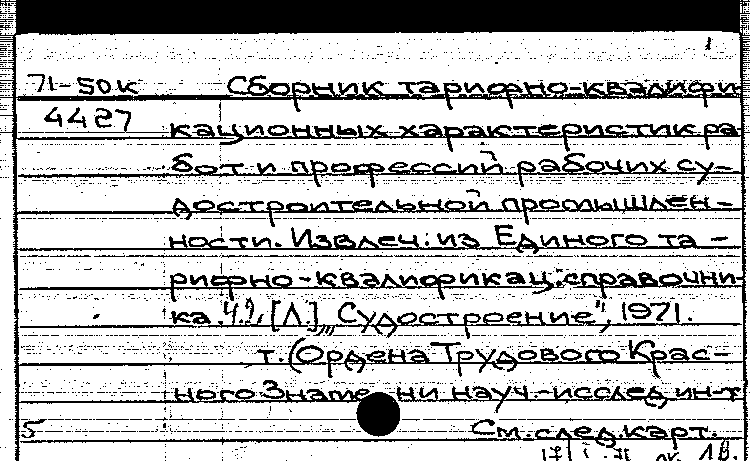 71-50к Сборник тарифно-квалифи-
4427 кационных характеристик ра-
бот и профессий рабочих су-
достроительной промышлен-
ности. Извлеч: из Единого та-
рифно-квалификац. справочни-
ка. [Л.], "Судостроение", 1971.
т. (Ордена Трудового Крас-
ного Знаме ни науч.-исслед. ин-т
5 См. след. карт.